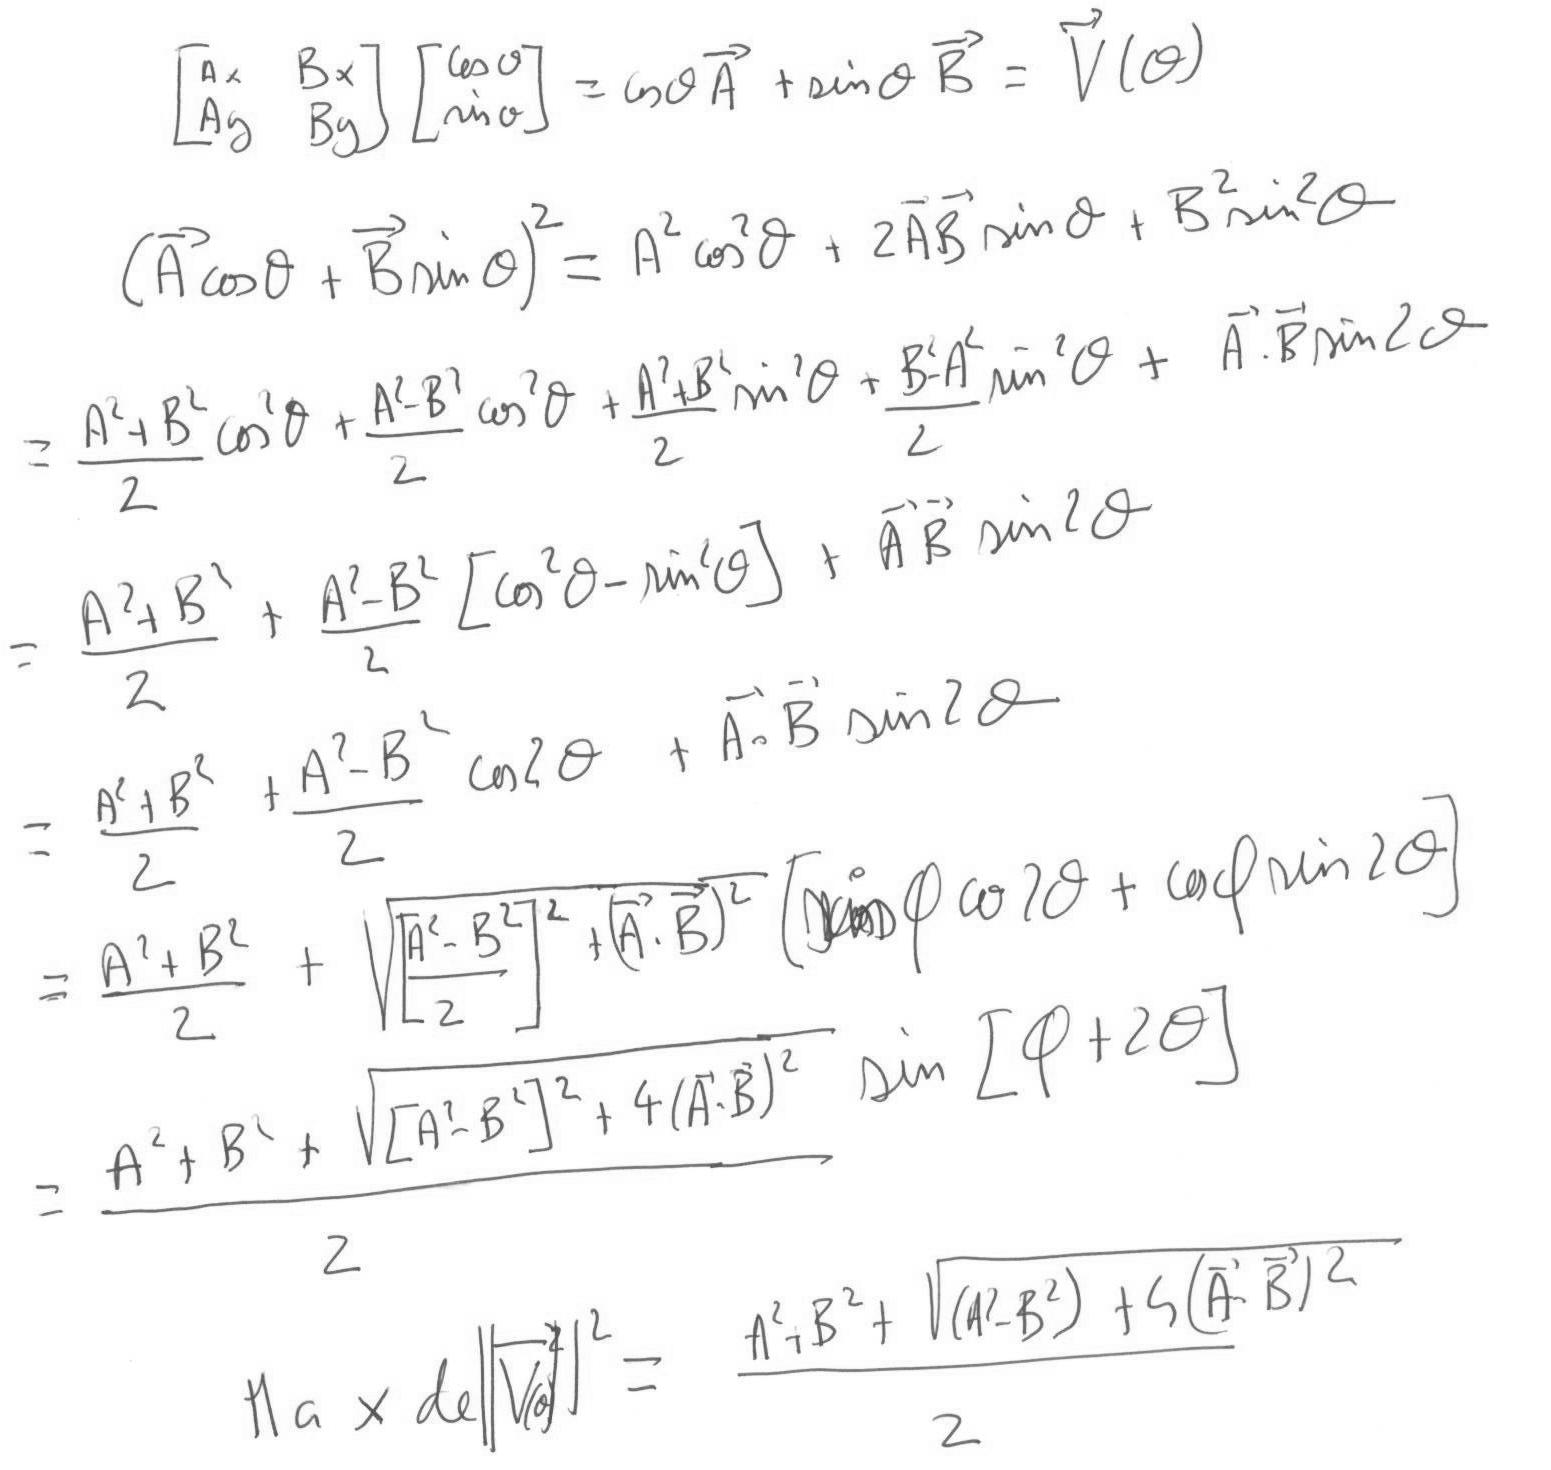 [Ax Bx Ay By] [cosθ sinθ] = cosθ A⃗ + sinθ B⃗ = V⃗(θ)
(A⃗ cosθ + B⃗ sinθ)² = A² cos²θ + 2A⃗B⃗ sinθ + B² sin²θ
= (A²+B²)/2 cos²θ + (A²-B²)/2 cos²θ + (A²+B²)/2 sin²θ + (B²-A²)/2 sin²θ + A⃗.B⃗ sin2θ
= (A²+B²)/2 + (A²-B²)/2 [cos²θ - sin²θ] + A⃗B⃗ sin2θ
= (A²+B²)/2 + (A²-B²)/2 cos2θ + A⃗.B⃗ sin2θ
= (A²+B²)/2 + √([(A²-B²)/2]² + (A⃗.B⃗)²) [sinφ cos2θ + cosφ sin2θ]
= (A²+B²+√([A²-B²]² + 4(A⃗.B⃗)²))/2 sin[φ+2θ]
Max de ||V⃗(θ)||² = (A²+B²+√((A²-B²) + 4(A⃗.B⃗)²))/2